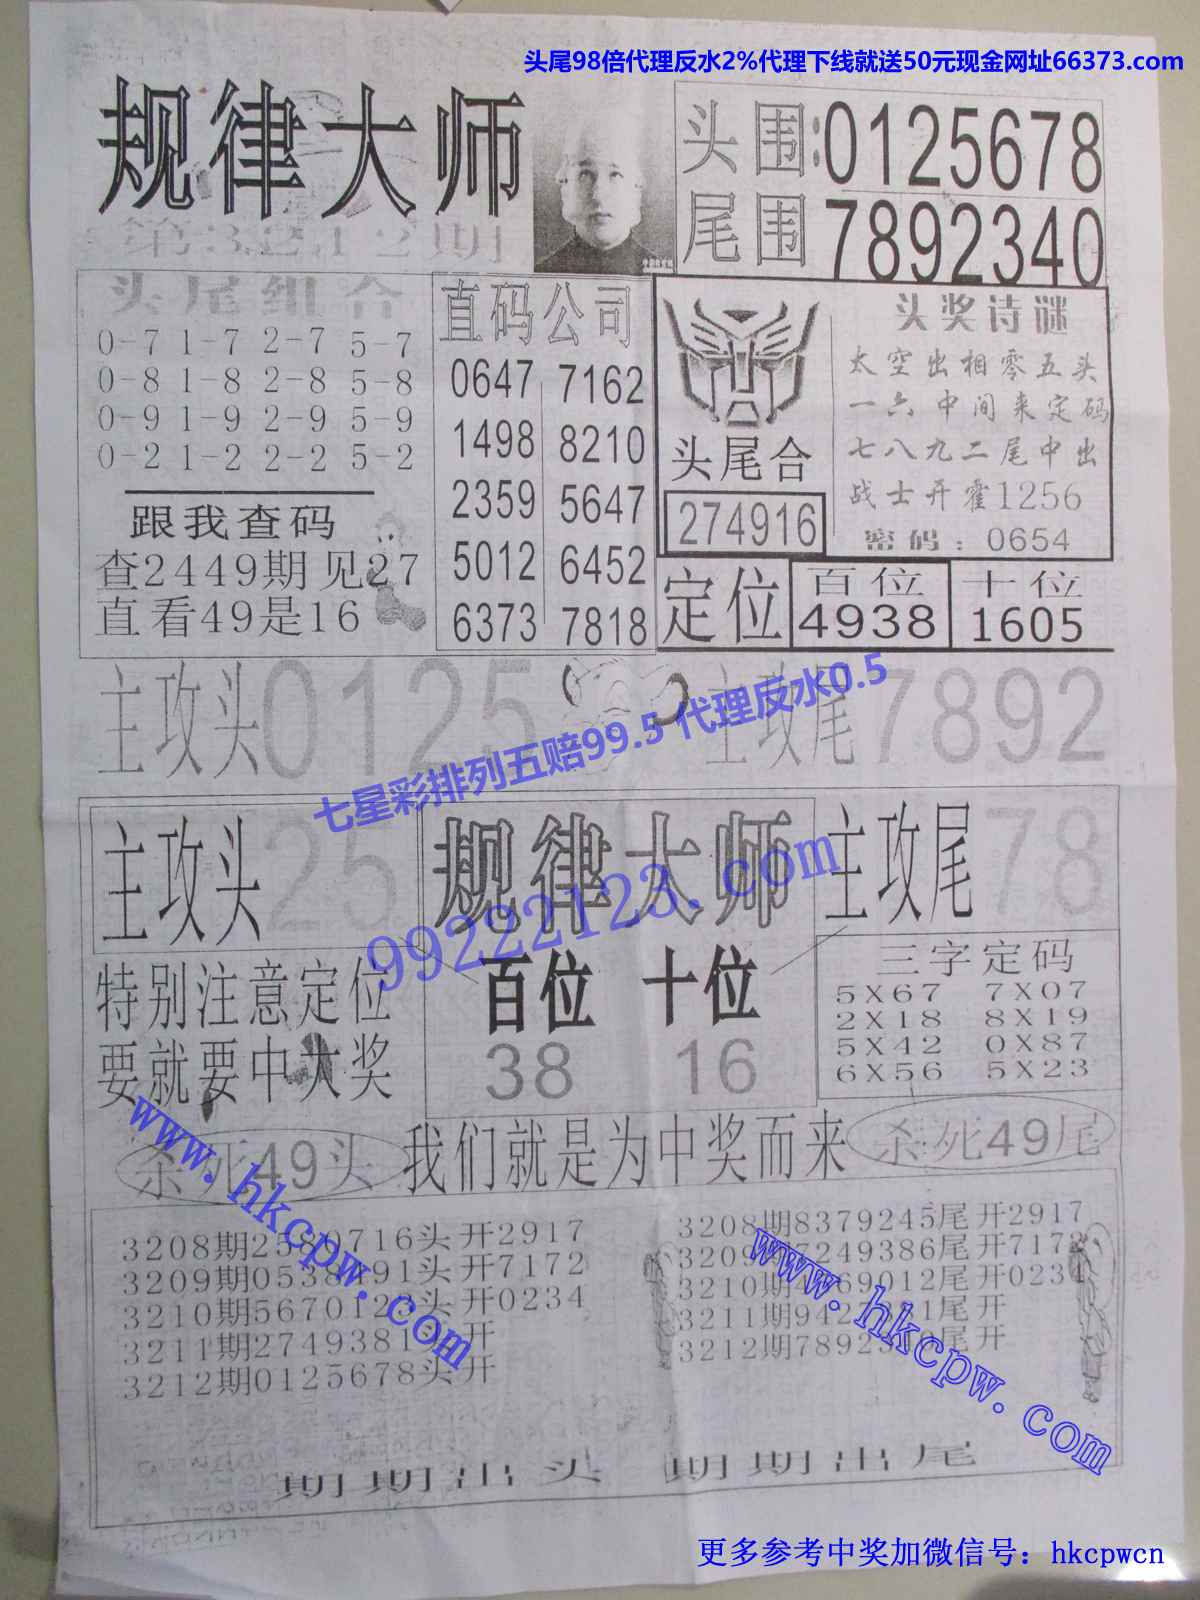 头尾98倍代理反水2%代理下线就送50元现金网址66373.com
规律大师
第3212期
头围:0125678
尾围7892340
头尾组合
0-7 1-7 2-7 5-7
0-8 1-8 2-8 5-8
0-9 1-9 2-9 5-9
0-2 1-2 2-2 5-2
跟我查码
查2449期见27
直看49是16
直码公司
0647 7162
1498 8210
2359 5647
5012 6452
6373 7818
头尾合
274916
头奖诗谜
太空出相零五头
一六中间来定码
七八九二尾中出
战士开霍1256
密码:0654
定位 百位 十位
4938 1605
主攻头0125
主攻尾7892
七星彩排列五赔99.5 代理反水0.5
99222123.com
主攻头25
规律大师
主攻尾78
特别注意定位
要就要中大奖
百位 十位
38 16
三字定码
5X67 7X07
2X18 8X19
5X42 0X87
6X56 5X23
杀死49头
我们就是为中奖而来
杀死49尾
www.hkcpw.com
3208期2580716头开2917
3209期0538491头开7172
3210期5670123头开0234
3211期2749381 开
3212期0125678头开
3208期8379245尾开2917
3209 7249386尾开7172
3210期 69012尾开0234
3211期942 81尾开
3212期7892 尾开
www.hkcpw.com
期期出头 期期出尾
更多参考中奖加微信号：hkcpwcn